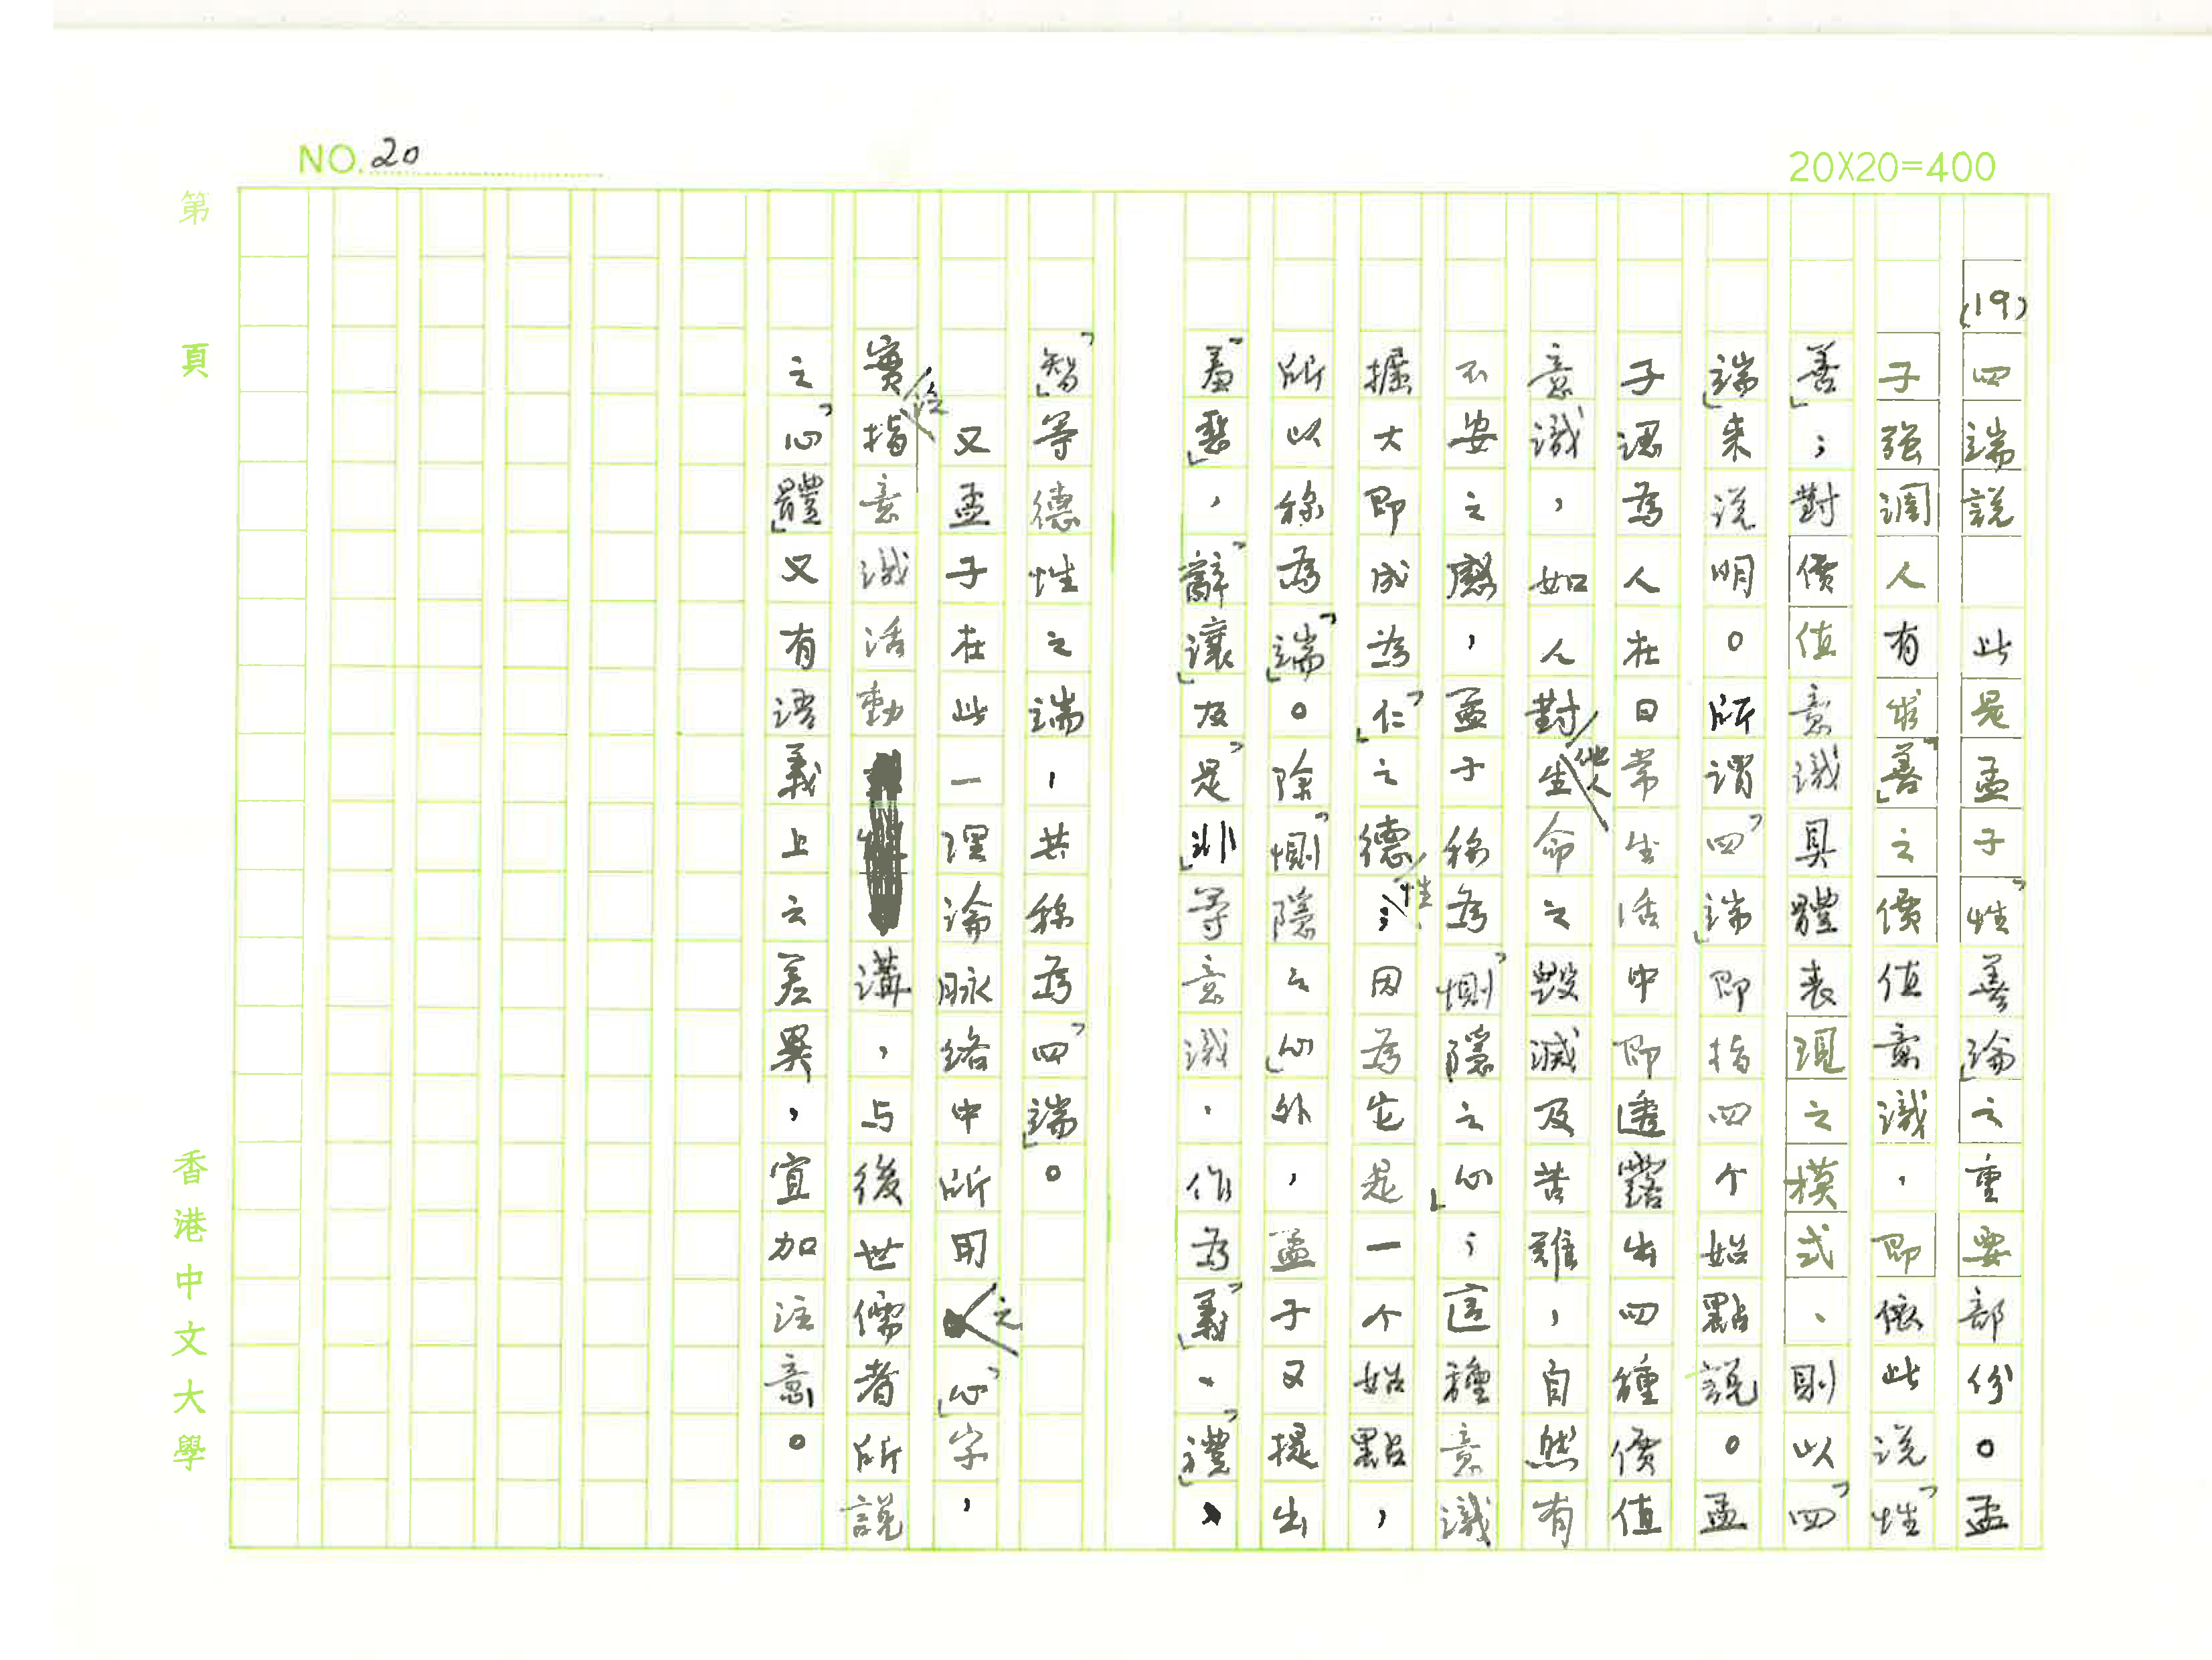 NO. 20
20X20=400
(19)
四端說　此是孟子「性善論」之重要部份。孟
子强調人有求「善」之價值意識，即依此說「性
善」；對價值意識具體表現之模式，則以「四
端」來說明。所謂「四端」即指四个始點說。孟
子認為人在日常生活中即透露出四種價值
意識，如人對他人生命之毀滅及苦難，自然有
不安之感，孟子稱為「惻隱之心」；這種意識
擴大即成為「仁」之德性；因為它是一个始點，
所以稱為「端」。除「惻隱之心」外，孟子又提出
「羞惡」，「辭讓」及「是非」等意識，作為「義」、「禮」、
「智」等德性之端，共稱為「四端」。
又孟子在此一理論脉絡中所用之「心」字，
實係指意識活動講，与後世儒者所說
之「心體」又有語義上之差異，宜加注意。
第　頁
香港中文大學